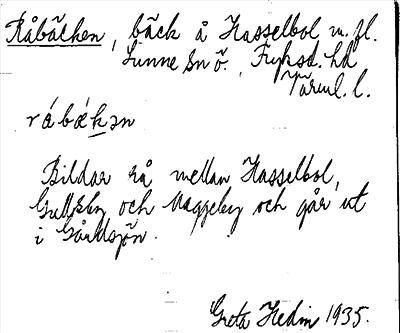 Råbäcken, bäck å Hasselbol m. fl.
Sunne sn Ö. Fryksd. hd
Värml. l.
råbäkən
Bildar rå mellan Hasselbol,
Gullsby och Maggeby och går ut
i Gårdsjön.
Greta Hedin 1935.